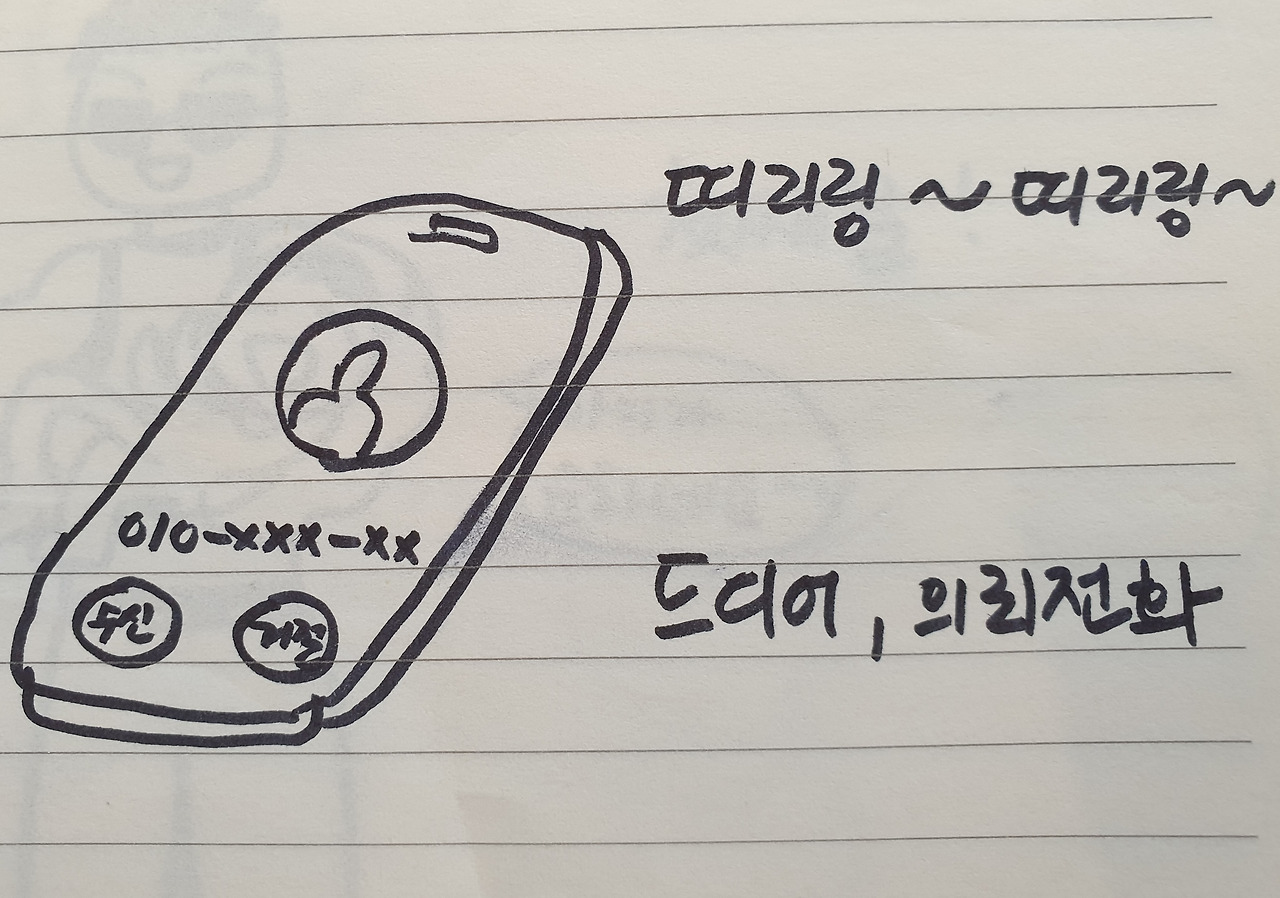 띠리링~ 띠리링~
010-xxx-xx
수신 거절
드디어, 의뢰전화